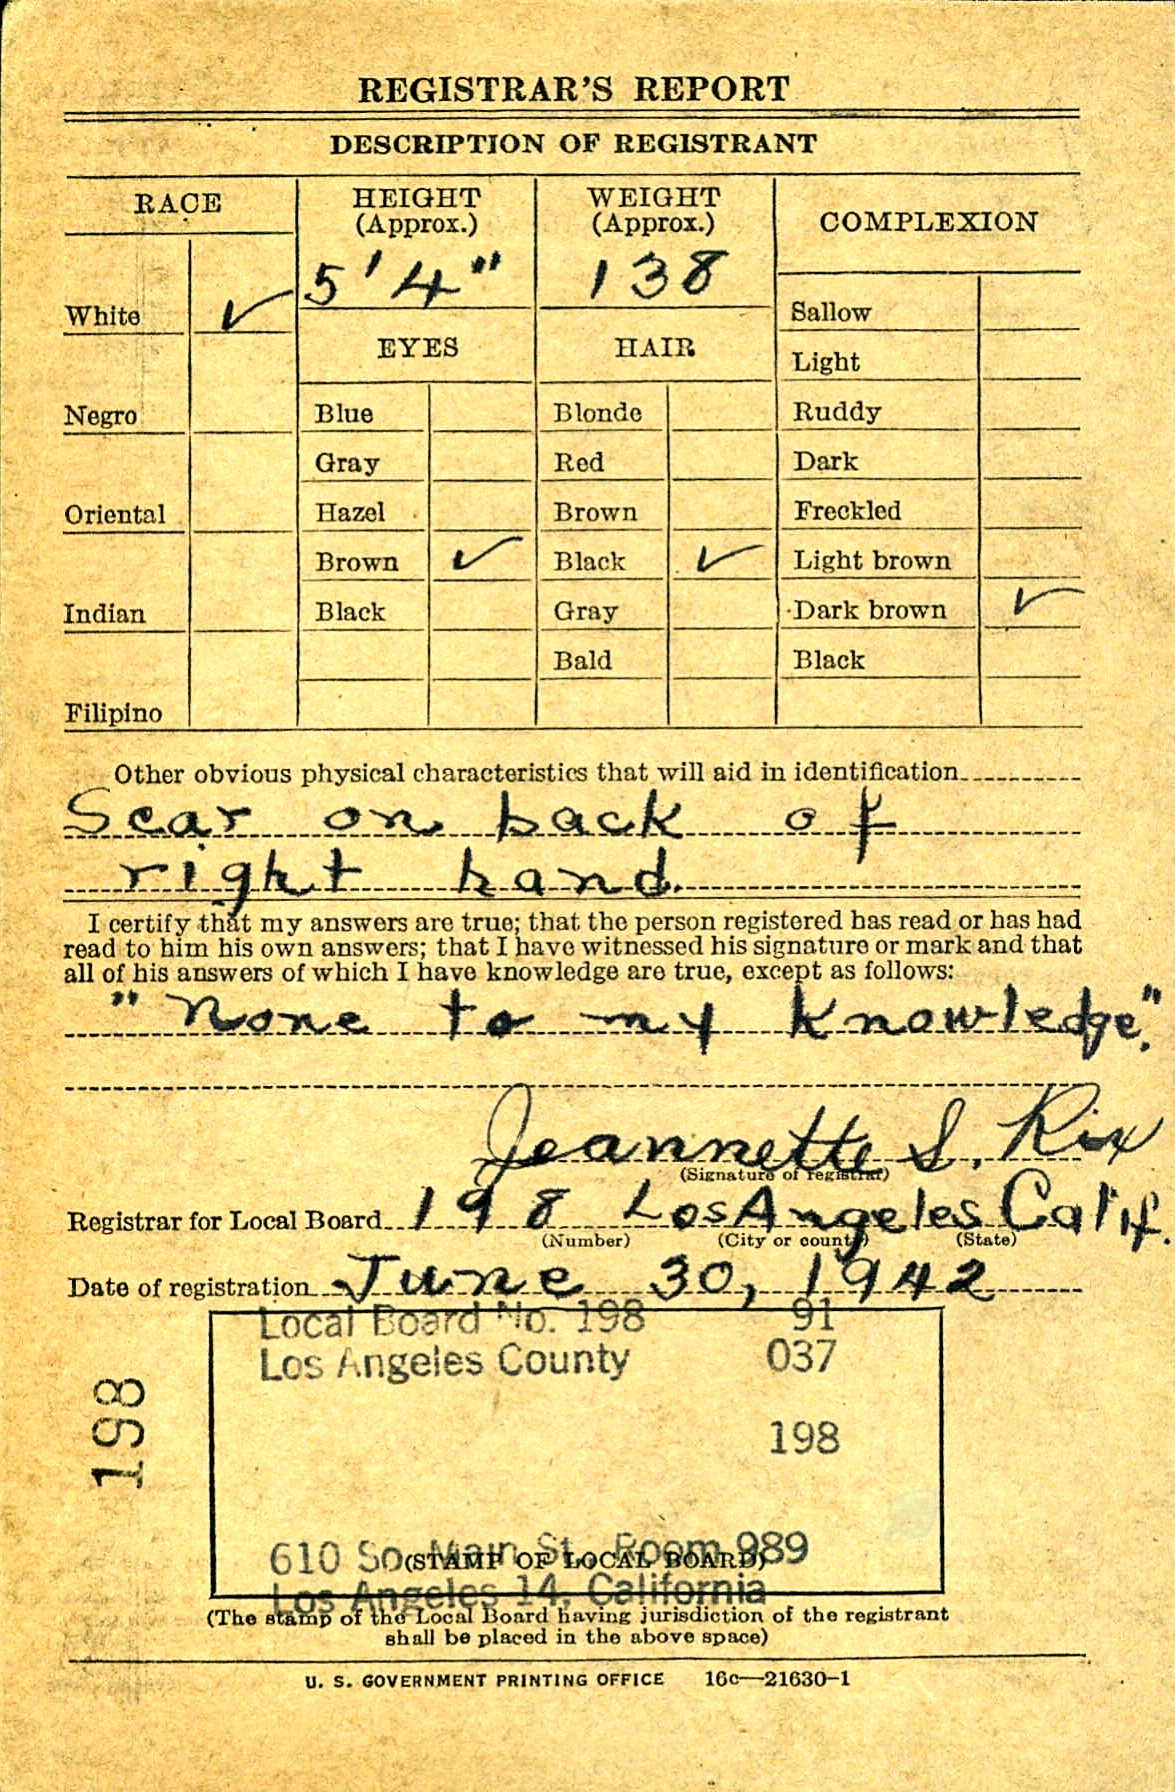 REGISTRAR'S REPORT
DESCRIPTION OF REGISTRANT
RACE
HEIGHT
(Approx.)
WEIGHT
(Approx.)
COMPLEXION
5' 4"
138
White ✓
Sallow
EYES
HAIR
Light
Negro
Blue
Blonde
Ruddy
Gray
Red
Dark
Oriental
Hazel
Brown
Freckled
Brown ✓
Black ✓
Light brown
Indian
Black
Gray
Dark brown ✓
Bald
Black
Filipino
Other obvious physical characteristics that will aid in identification
Scar on back of
right hand.
I certify that my answers are true; that the person registered has read or has had
read to him his own answers; that I have witnessed his signature or mark and that
all of his answers of which I have knowledge are true, except as follows:
"None to my knowledge."
Jeannette S. Rix
(Signature of registrar)
Registrar for Local Board 198 Los Angeles Calif.
(Number) (City or county) (State)
Date of registration June 30, 1942
Local Board No. 198 91
Los Angeles County 037
198
198
610 So. Main St., Room 989
(STAMP OF LOCAL BOARD)
Los Angeles 14, California
(The stamp of the Local Board having jurisdiction of the registrant
shall be placed in the above space)
U. S. GOVERNMENT PRINTING OFFICE 16c—21630-1